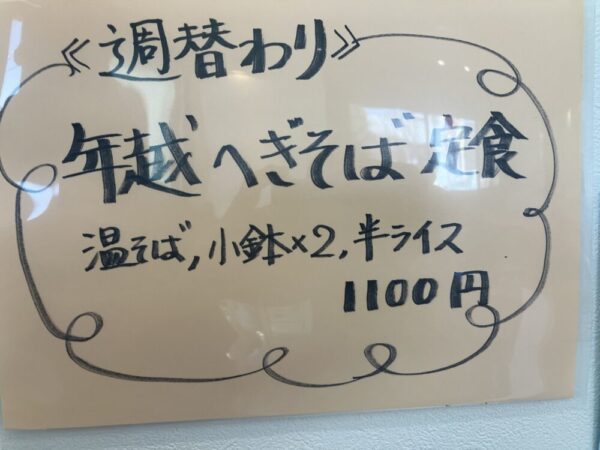 ≪週替わり≫
年越へぎそば定食
温そば,小鉢×2,半ライス
1100円